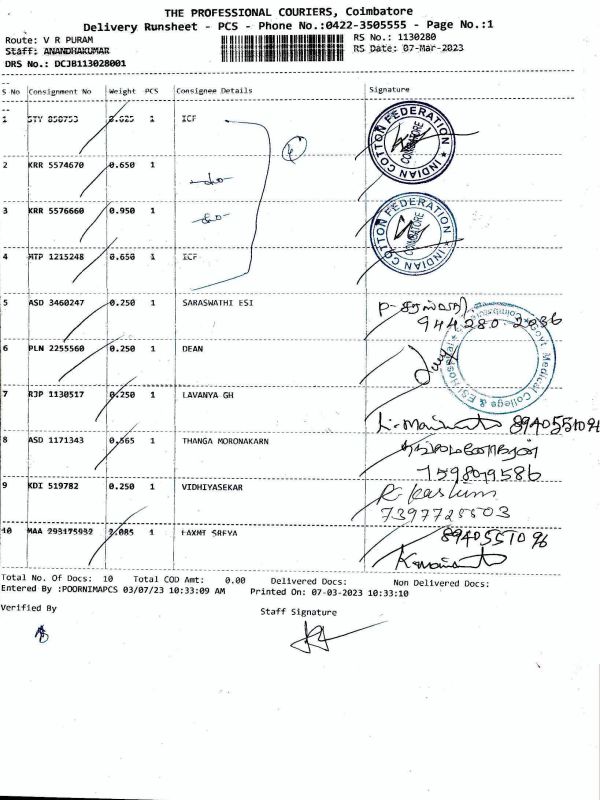 THE PROFESSIONAL COURIERS, Coimbatore
Delivery Runsheet - PCS - Phone No.:0422-3505555 - Page No.:1
Route: V R PURAM RS No.: 1130280
Staff: ANANDHAKUMAR RS Date: 07-Mar-2023
DRS No.: DCJB113028001
S No Consignment No Weight PCS Consignee Details Signature
1 STY 850753 0.625 1 ICF
INDIAN COTTON FEDERATION COIMBATORE
2 KRR 5574670 0.650 1 -do-
3 KRR 5576660 0.950 1 -do-
INDIAN COTTON FEDERATION COIMBATORE
4 MTP 1215248 0.650 1 ICF
5 ASD 3460247 0.250 1 SARASWATHI ESI
944 280 2036
Govt. Medical College & ESI Hospital
6 PLN 2255560 0.250 1 DEAN
7 RJP 1130517 0.250 1 LAVANYA GH
8940551096
8 ASD 1171343 0.565 1 THANGA MORONAKARN
7598079586
9 KDI 519782 0.250 1 VIDHIYASEKAR
7397728503
10 MAA 293175932 2.085 1 LAXMI SREYA
8940551096
Total No. Of Docs: 10 Total COD Amt: 0.00 Delivered Docs: Non Delivered Docs:
Entered By :POORNIMAPCS 03/07/23 10:33:09 AM Printed On: 07-03-2023 10:33:10
Verified By Staff Signature